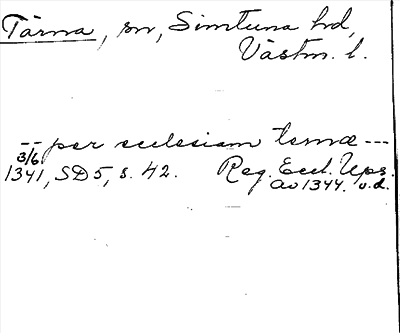 Tärna, sn, Simtuna hd,
Västm. l.
-- per ecclesiam terne ---
3/6
1341, SD 5, s. 42. Reg. Eccl. Ups.
av 1344. o.d.